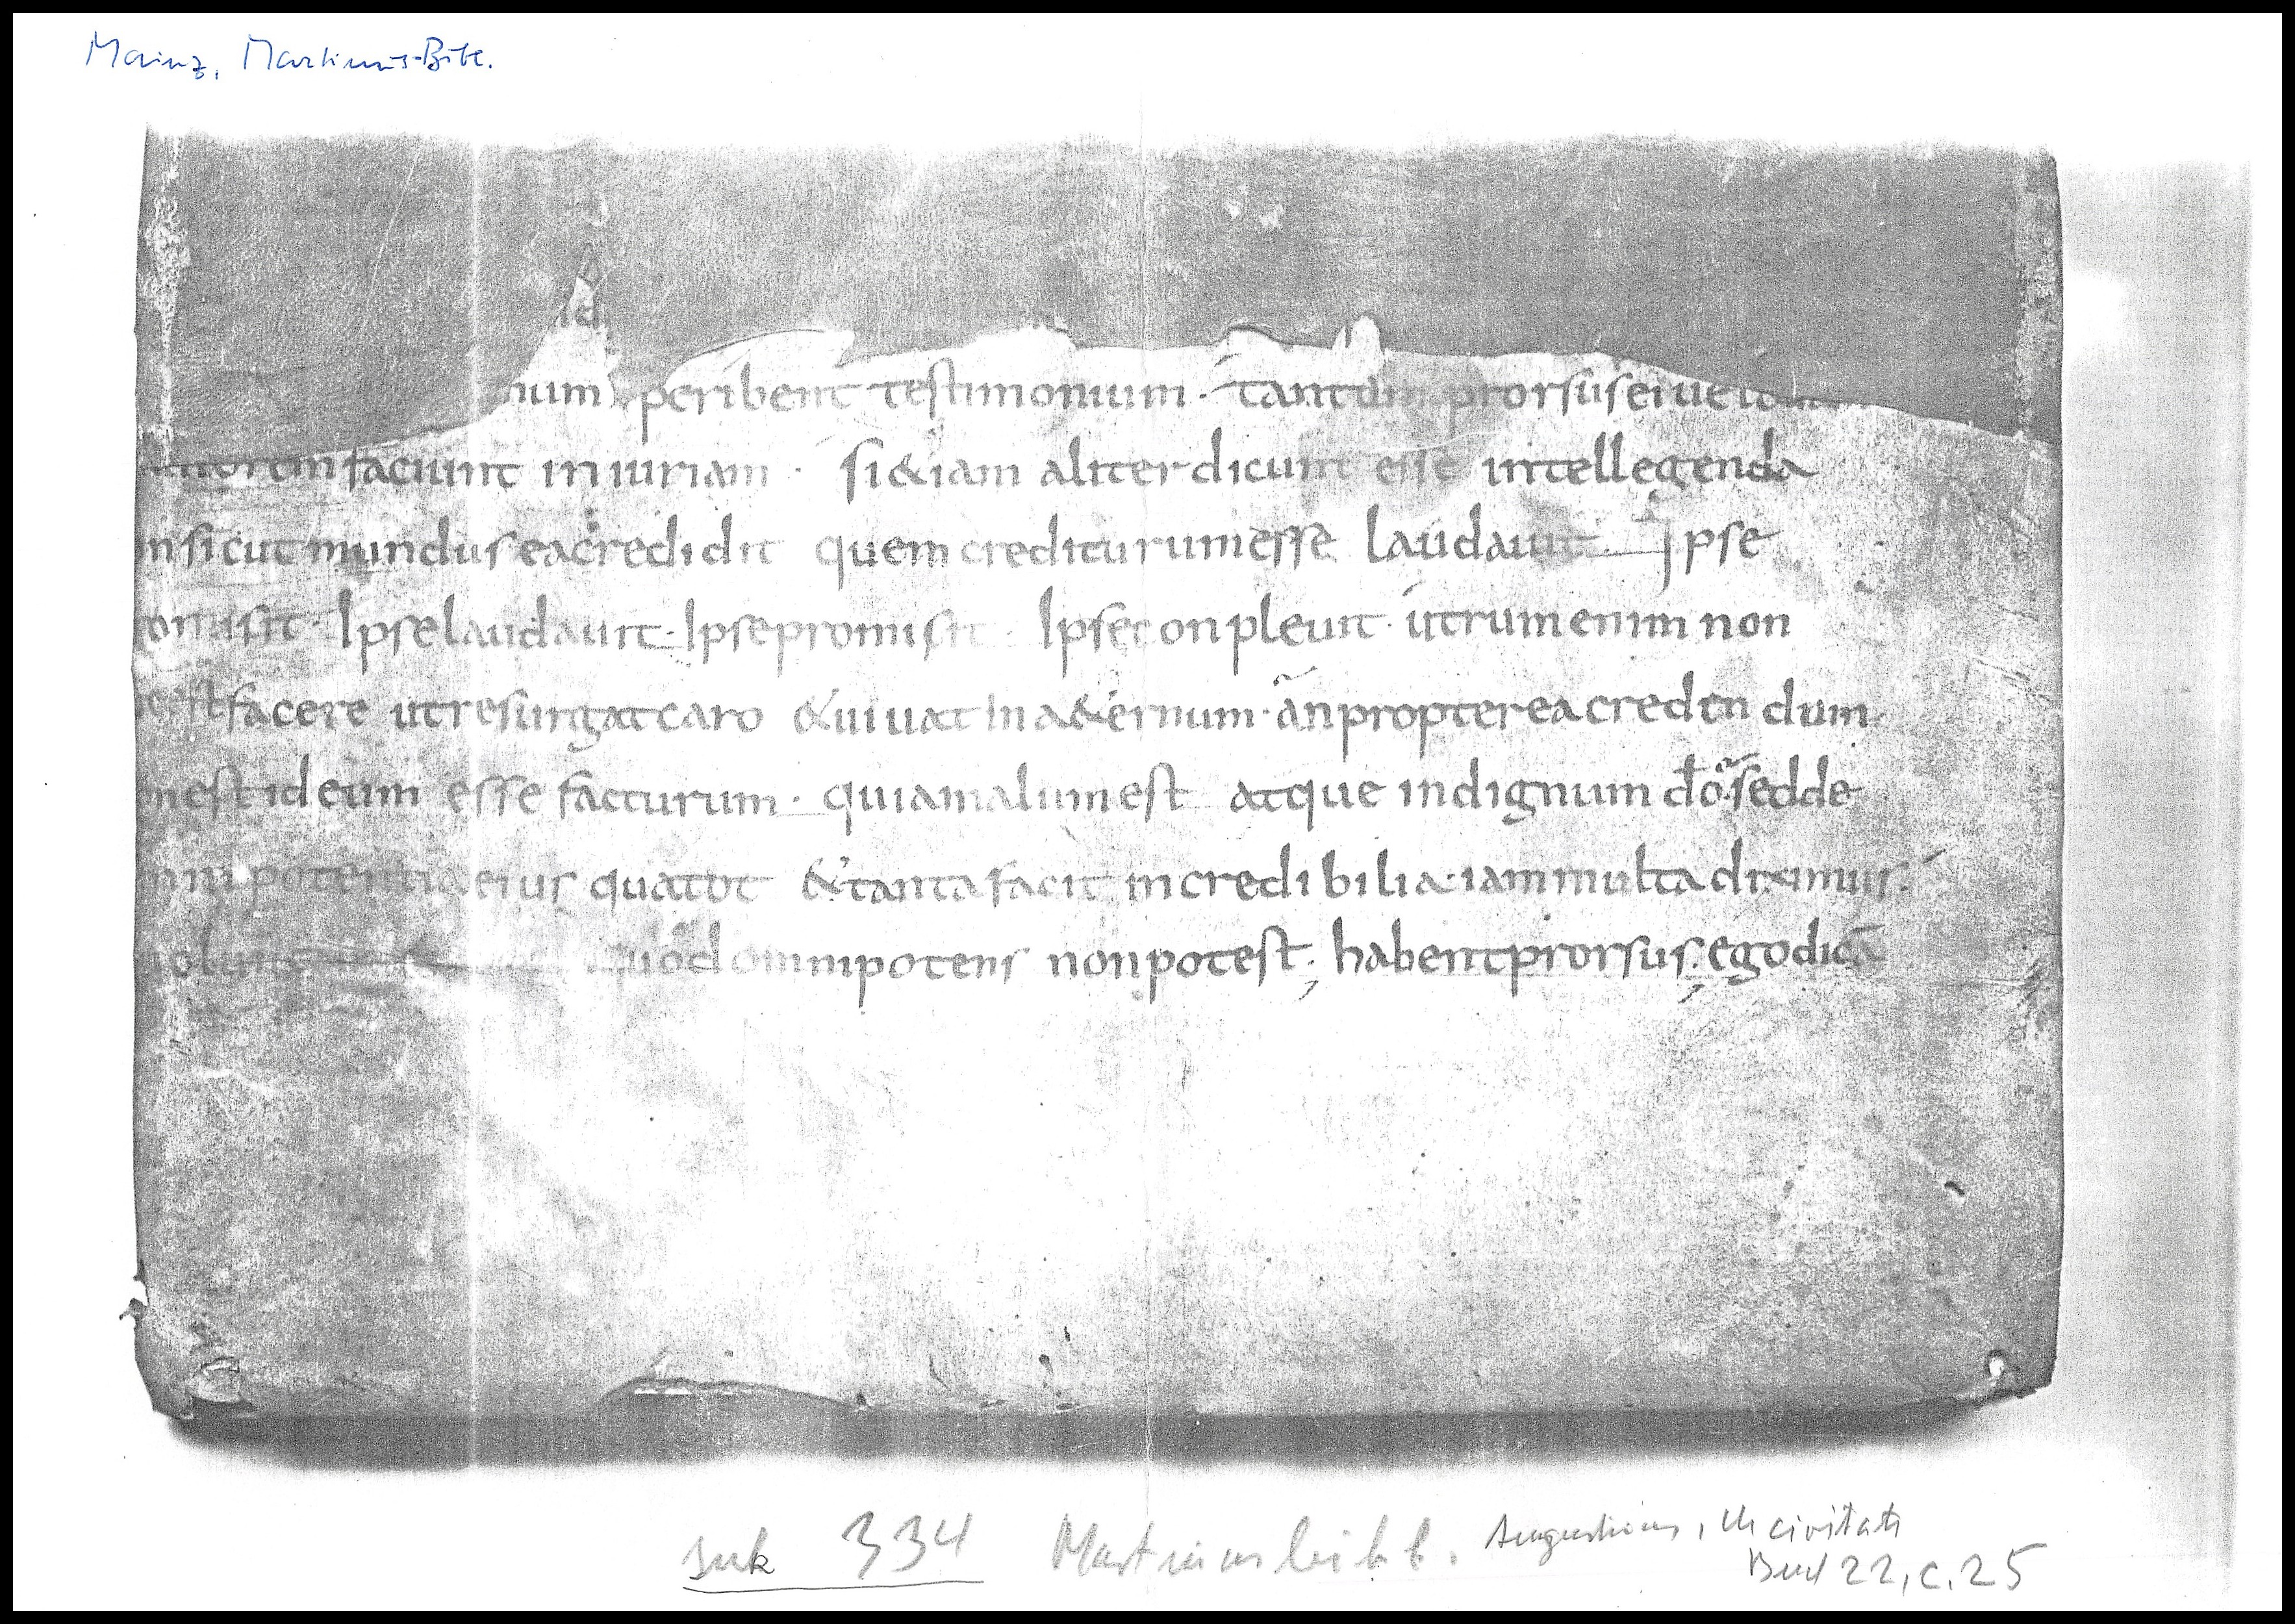 Mainz, Martinus-Bibl.
num peribent testimonium · tantam prorsus ei ue
faciunt in iuriam · si &iam aliter dicunt esse intellegenda
n sicut mundus ea credidit quem crediturum esse laudauit · Ipse
omisit · Ipse laudauit · Ipse promisit · Ipse conpleuit · utrum enim non
est facere ut resurgat caro & uiuat in a&ernum · an propterea creden dum
n est id eum esse facturum · quia malum est atque indignum dō · sed de
omnipotentia eius qua tot & tanta facit incredibilia · iam multa diximus ·
uolunt quod omnipotens non potest ; habent prorsus ; ego dicā
Ink 334 Martinusbibl. Augustinus, De civitate
Buch 22, c. 25